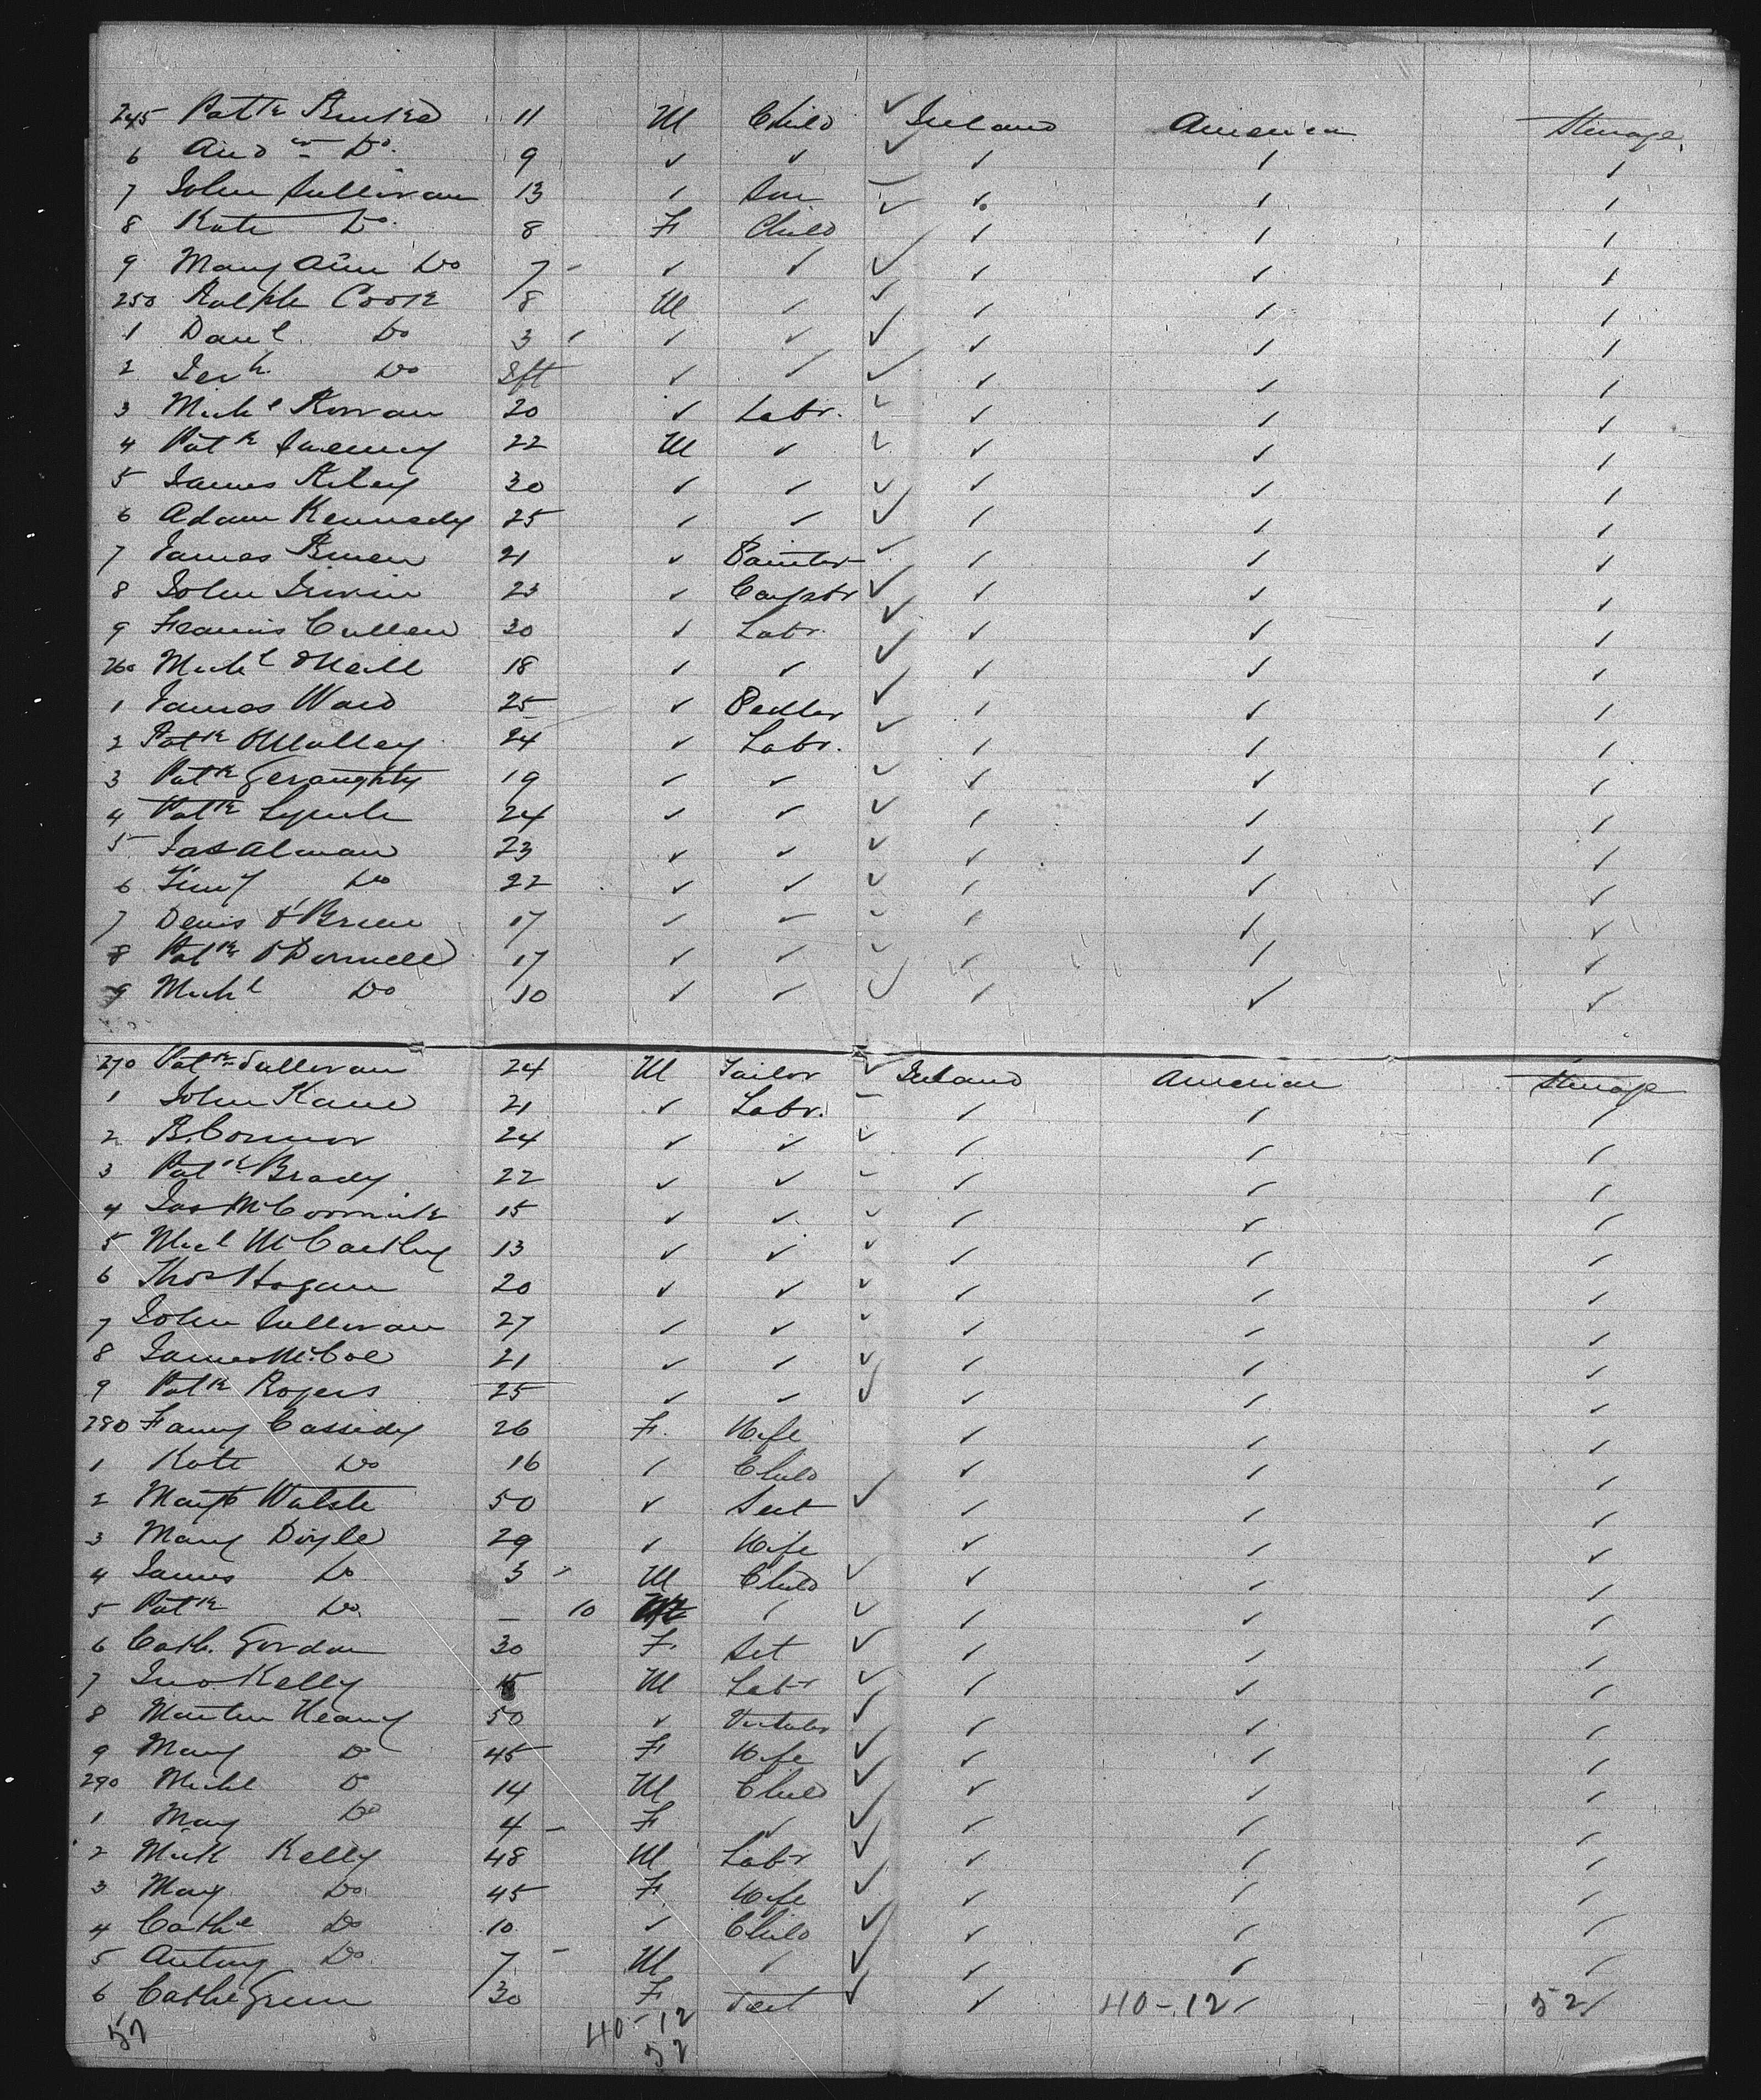 245 Patk Burke 11 M Child ✓ Ireland America Steerage
6 Andw Do. 9 ✓ ✓ ✓ ✓ ✓ ✓
7 John Sullivan 13 ✓ Son ✓ ✓ ✓
8 Kate Do. 8 F Child ✓ ✓ ✓ ✓
9 Mary Ann Do 7 - ✓ ✓ ✓ ✓ ✓ ✓
250 Ralph Cook 8 M ✓ ✓ ✓ ✓ ✓
1 Danl. Do 3 ✓ ✓ ✓ ✓ ✓ ✓
2 Jerh. Do ✓ ✓ ✓ ✓ ✓ ✓
3 Michl Kirwan 20 ✓ Labr. ✓ ✓ ✓ ✓
4 Patk Sweeny 22 M ✓ ✓ ✓ ✓ ✓
5 James Riley 30 ✓ ✓ ✓ ✓ ✓ ✓
6 Adam Kennedy 25 ✓ ✓ ✓ ✓ ✓ ✓
7 James 21 ✓ Painter ✓ ✓ ✓ ✓
8 John Irwin 23 ✓ ✓ ✓ ✓ ✓
9 Francis Cullen 30 ✓ Labr. ✓ ✓ ✓ ✓
260 Michl ONeill 18 ✓ ✓ ✓ ✓ ✓ ✓
1 James Ward 25 ✓ Pedler ✓ ✓ ✓ ✓
2 Patk OMalley 24 ✓ Labr. ✓ ✓ ✓ ✓
3 Patk Geraughty 19 ✓ ✓ ✓ ✓ ✓ ✓
4 Patk Lynch 24 ✓ ✓ ✓ ✓ ✓ ✓
5 Jas Alman 23 ✓ ✓ ✓ ✓ ✓ ✓
6 Timy Do 22 ✓ ✓ ✓ ✓ ✓ ✓
7 Denis O'Brien 17 ✓ ✓ ✓ ✓ ✓ ✓
8 Patk ODonnell 17 ✓ ✓ ✓ ✓ ✓ ✓
9 Michl Do 10 ✓ ✓ ✓ ✓ ✓ ✓
270 Patk Sullivan 24 M Tailor ✓ Ireland America Steerage
1 John Kane 21 ✓ Labr. - ✓ ✓ ✓
2 B. Connor 24 ✓ ✓ ✓ ✓ ✓ ✓
3 Patk Brady 22 ✓ ✓ ✓ ✓ ✓ ✓
4 Jas McCormick 15 ✓ ✓ ✓ ✓ ✓ ✓
5 Micl McCarthy 13 ✓ ✓ ✓ ✓ ✓ ✓
6 Thos Hogan 20 ✓ ✓ ✓ ✓ ✓ ✓
7 John Sullivan 27 ✓ ✓ ✓ ✓ ✓ ✓
8 James McCoe 21 ✓ ✓ ✓ ✓ ✓ ✓
9 Patk Rogers 25 ✓ ✓ ✓ ✓ ✓ ✓
280 Fanny Cassidy 26 F. Wife ✓ ✓ ✓
1 Kate Do 16 ✓ Child ✓ ✓ ✓
2 Margt Walsh 50 ✓ ✓ ✓ ✓ ✓
3 Mary Doyle 29 ✓ Wife ✓ ✓ ✓
4 James Do 3 - M Child ✓ ✓ ✓ ✓
5 Patk Do. - 10 ✓ ✓ ✓ ✓ ✓
6 Cath. Gordon 30 F. ✓ ✓ ✓ ✓
7 Jno Kelly 15 M Labr ✓ ✓ ✓ ✓
8 Martin Heany 50 ✓ ✓ ✓ ✓ ✓
9 Mary Do 45 F Wife ✓ ✓ ✓ ✓
290 Michl Do 14 M Child ✓ ✓ ✓ ✓
1 May Do 4 - F ✓ ✓ ✓ ✓ ✓
2 Mick Kelly 48 M Labr ✓ ✓ ✓ ✓
3 May Do 45 F Wife ✓ ✓ ✓ ✓
4 Cathe Do 10 ✓ Child ✓ ✓ ✓ ✓
5 Antony Do. 7 - M ✓ ✓ ✓ ✓ ✓
6 Cathe Green 30 F ✓ ✓ 40-12 ✓ 52 ✓
52 40-12
52